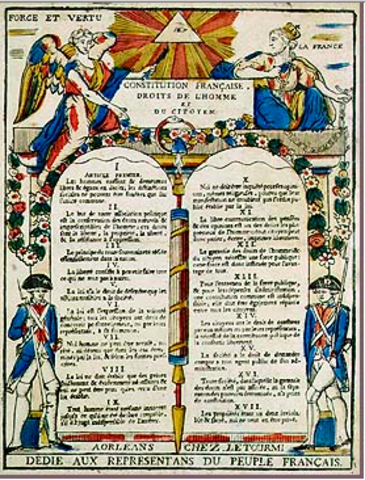 FORCE ET VERTU
LA FRANCE
CONSTITUTION FRANÇAISE.
DROITS DE L'HOMME
ET
DU CITOYEN.
I
ARTICLE PREMIER.
Les hommes naissent & demeurent
libres & égaux en droits, les distinctions
sociales ne peuvent être fondées que sur
I I.
Le but de toute association politique
est la conservation des droits naturels &
imprescriptibles de l'homme; ces droits
sont la liberté, la propriété, la sûreté
& la résistance à l'oppression.
I I I.
Le principe de toute souveraineté réside
essentiellement dans la
I V.
La liberté consiste à pouvoir faire tout
ce qui ne nuit pas à
V.
La loi n'a le droit de défendre que les
actions nuisibles à la société.
V I.
La loi est l'expression de la volonté
générale; tous les citoyens ont droit de
concourir personnellement, ou par leurs
représentans, à sa formation.
V I I.
Nul homme ne peut être accusé,
détenu que dans les cas
par la loi, & selon les formes
V I I I.
La loi ne doit établir que des peines
strictement & évidemment nécessaires &
I X.
Tout homme étant présumé innocent
jusqu'à ce qu'il ait été
X.
Nul ne doit être inquiété pour ses opinions,
mêmes religieuses, pourvu que leur
manifestation ne trouble pas l'ordre public
établi par la loi.
X I.
La libre communication des pensées
& des opinions est un des droits les plus
précieux de l'homme: tout citoyen peut
X I I.
La garantie des droits de l'homme
& du citoyen nécessite une force publique:
cette force est donc instituée pour l'avantage
de tous.
X I I I.
Pour l'entretien de la force publique,
& pour les dépenses d'administration,
une contribution commune est indispensable;
elle doit être également répartie
X I V.
Les citoyens ont le droit de constater
par eux mêmes ou par leurs représentans,
la nécessité de la contribution publique
X V.
La société a le droit de demander
compte à tout agent public de son administration.
X V I.
Toute société, dans laquelle la garantie
des droits n'est pas assurée, ni la
des pouvoirs déterminée, n'a point
de constitution.
X V I I.
Les propriétés étant un droit inviolable
& sacré, nul ne peut en être privé
A ORLEANS CHEZ LETOURMI
DEDIE AUX REPRESENTANS DU PEUPLE FRANÇAIS.